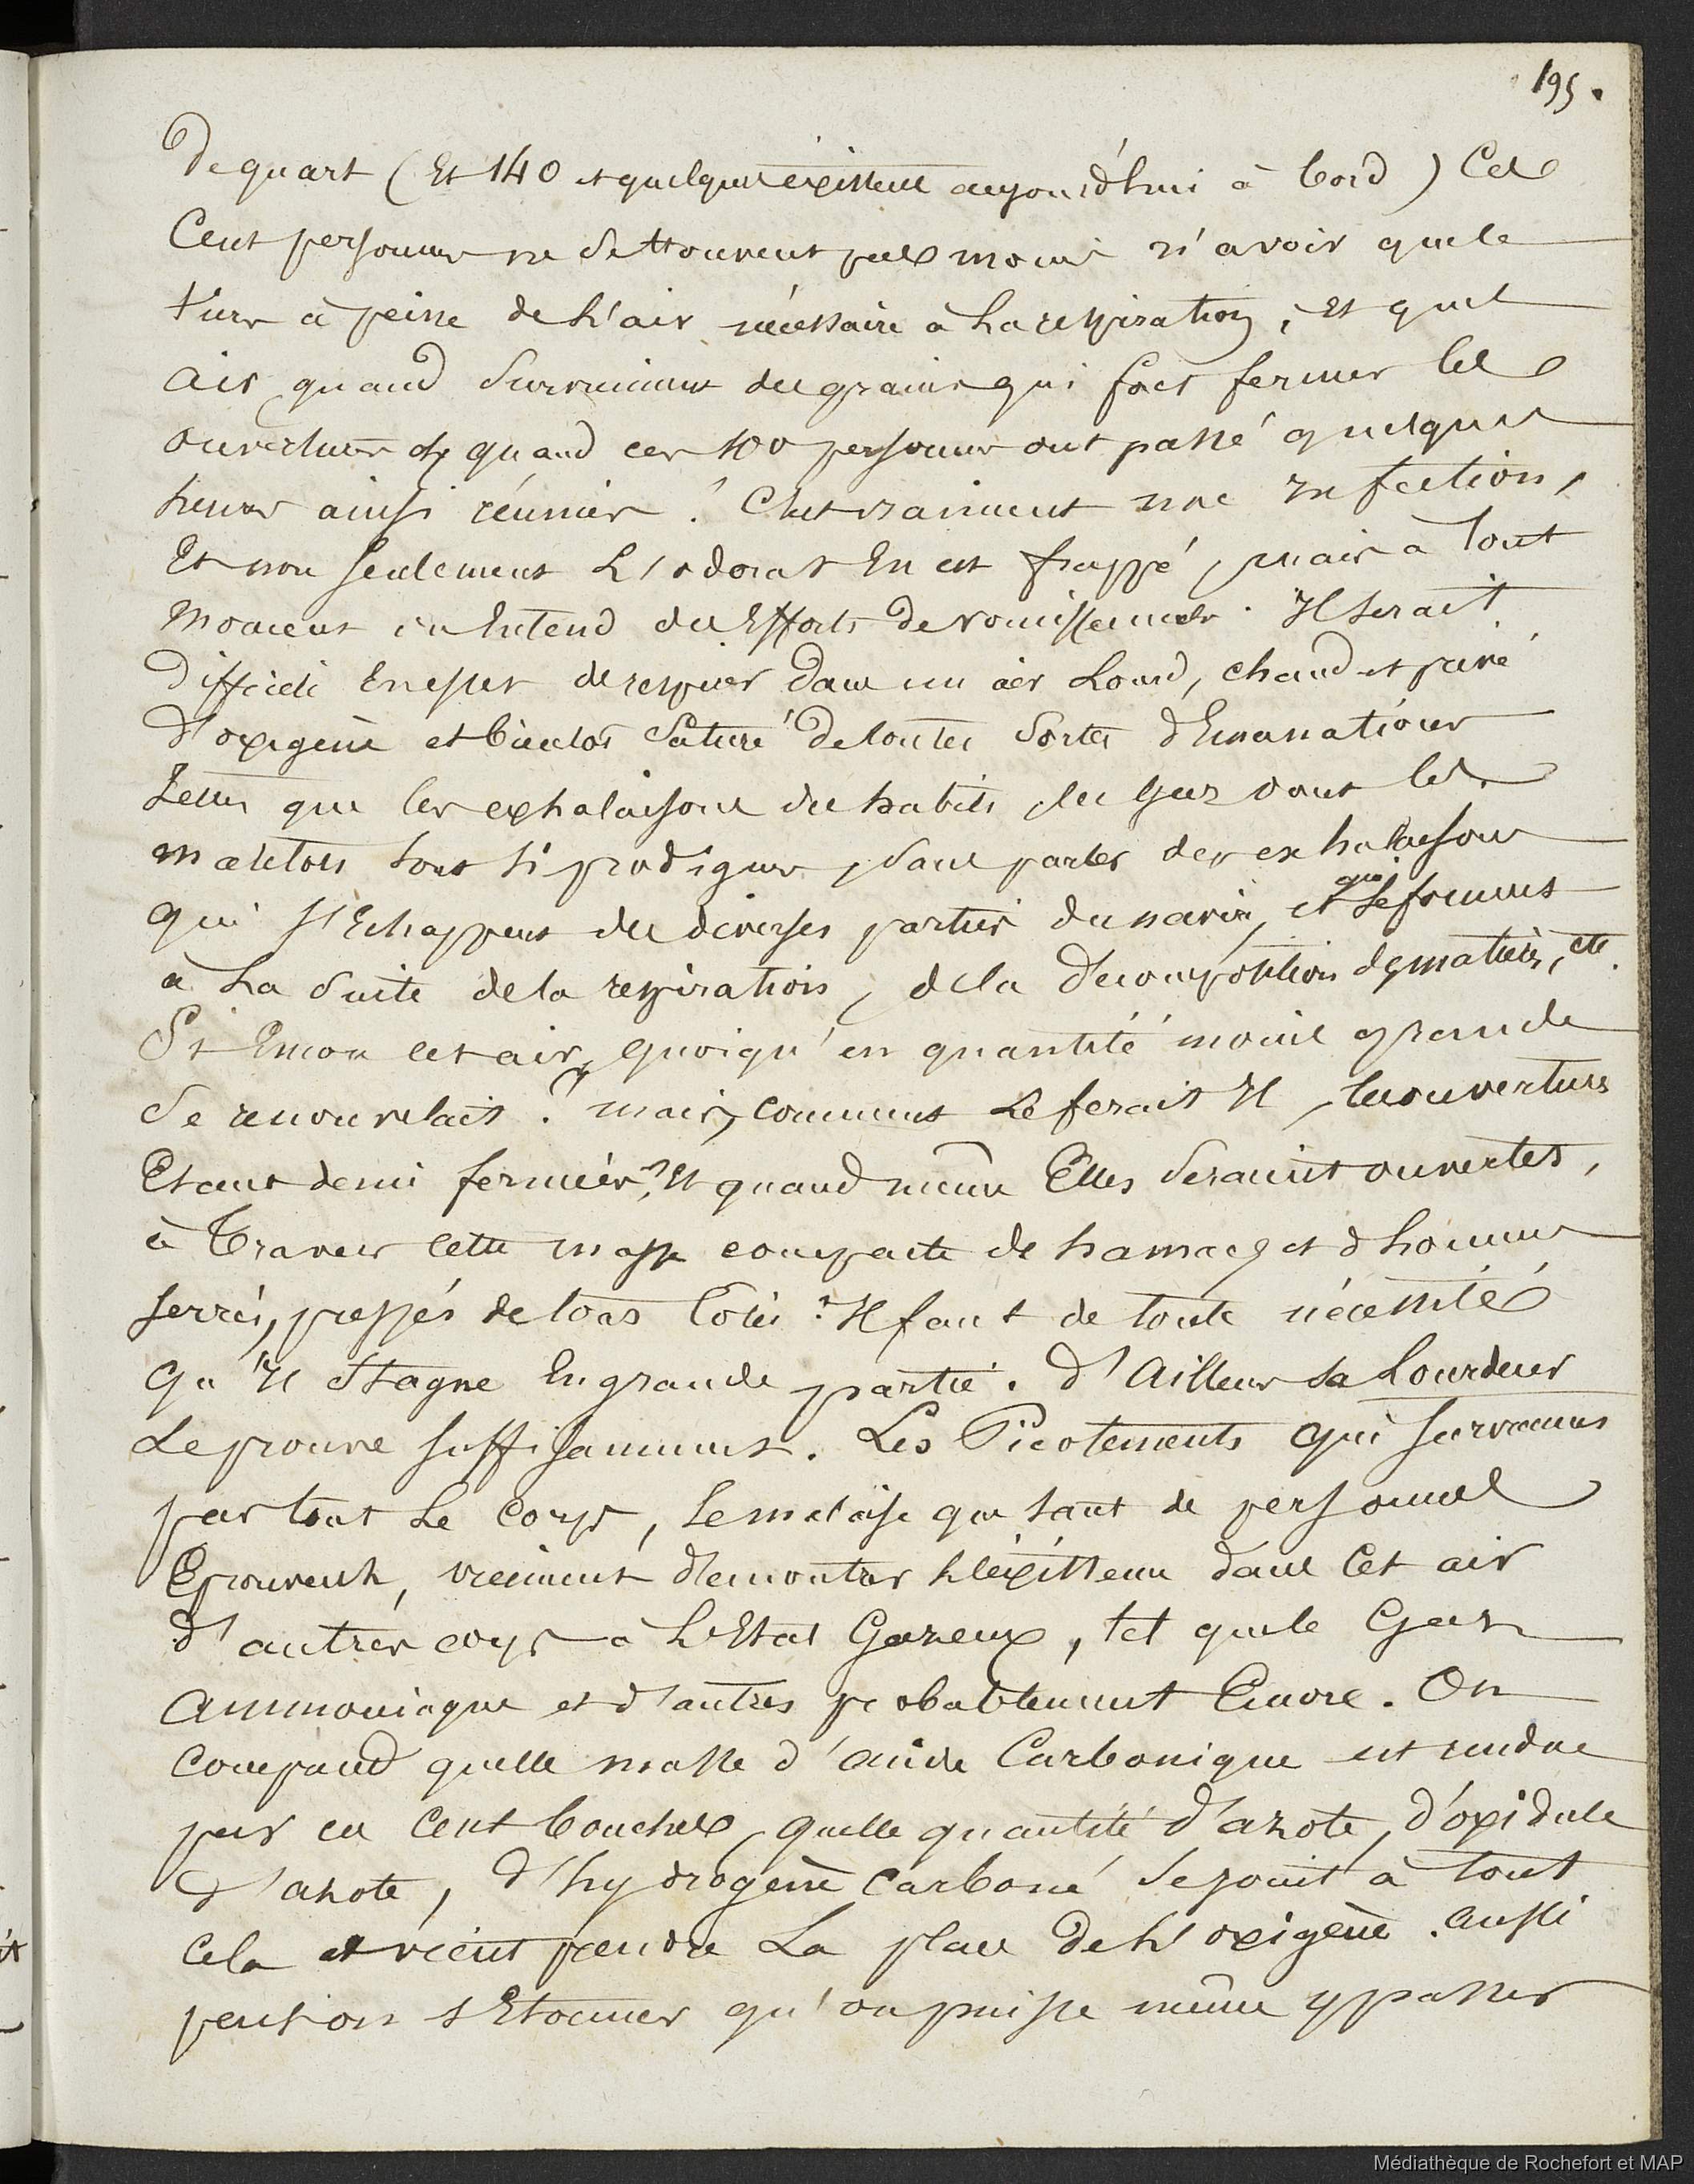 195.
De quart (Et 140 et quelques éxistent aujourd'hui à bord) Ces
Cent personnes ne se trouvent pas moins n'avoir que le
tiers à peine de l'air nécessaire à la respiration, et quel
air quand surviennent des grains qui font fermer les
ouvertures & quand ces 100 personnes ont passé quelques
heures ainsi réunies ! C'est vraiment une infection,
Et non seulement L'odorat En est frappé, mais à tout
moment on Entend des Efforts de vomissements. Il serait
Difficile En effet de respirer Dans un air Lourd, chaud et privé
D'oxigène et bientôt saturé De toutes sortes d'Emanations
telles que les exhalaisons des habits, les gaz dont les
matelots sont si prodigues, sans parler des exhalaisons
qui s'Echappent des diverses parties du navire, et qui se forment
à La suite de la respiration, de la décomposition de matières, etc.
Si Encore cet air, quoiqu'en quantité moins grande
se renouvelait ? mais, comment Le ferait Il, les ouvertures
Etant demi fermées ? Et quand même Elles seraient ouvertes,
à Travers cette masse compacte de hamacs et d'hommes
serrés, pressés de tous Côtés ? Il faut de toute nécessité
qu'Il stagne En grande partie. D'Ailleurs sa Lourdeur
Le prouve suffisamment. Les Picotements qui surviennent
par tout Le corps, Le malaise que tant de personnes
Eprouvent, viennent démontrer L'éxistence dans Cet air
d'autres corps à L'Etat Gazeux, tel que le Gaz
Ammoniaque et d'autres probablement Encore. On
comprend quelle masse d'acide Carbonique est rendue
par ces Cent bouches, quelle quantité d'azote, d'oxidule
d'azote, d'hydrogène carboné se joint à tout
cela et vient prendre La place De L'oxigène. Aussi
peut-on s'Etonner qu'on puisse même y passer
Médiathèque de Rochefort et MAP